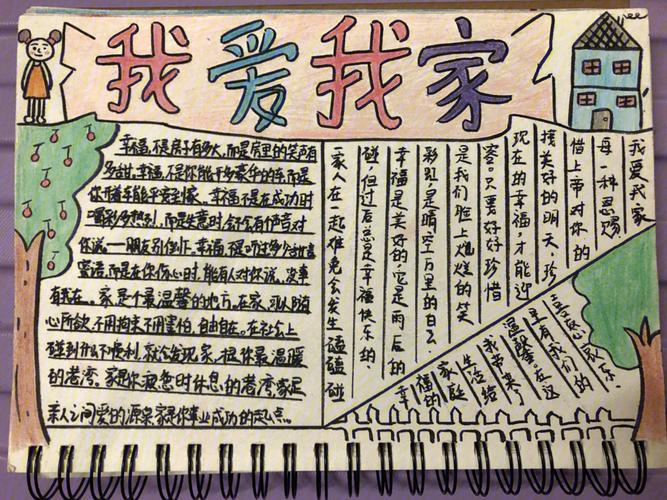 我爱我家
幸福,不是房子有多大,而是房里的笑声有
多甜。幸福,不是你能开多豪华的车,而是
你开着车能平安到家。幸福,不是在成功时
喝彩多热烈,而是失意时,会有个声音对
你说——朋友别倒下。幸福,不是听过多少甜言
蜜语,而是在你伤心时,能有人对你说,没事
有我在。家是个最温馨的地方。在家,可以随
心所欲,不用拘束,不用害怕,自由自在。在社会上
碰到什么不便利,就会发现家,是你最温暖
的港湾。家是你疲惫时休息的港湾,家是
亲人之间爱的源泉,家是你事业成功的起点。
我爱我家
每一种恩赐。
借上帝对你的
接美好的明天,珍
现在的幸福才能迎
客。只要好好珍惜
是我们脸上灿烂的笑
彩虹,是晴空万里的白云,
幸福是美好的,它是雨后的
碰,但过后总是幸福快乐的。
家人在一起难免会发生磕磕碰
幸
福的
家庭
生活给
我带来了
温馨。在这
里有我们的
喜怒哀乐。